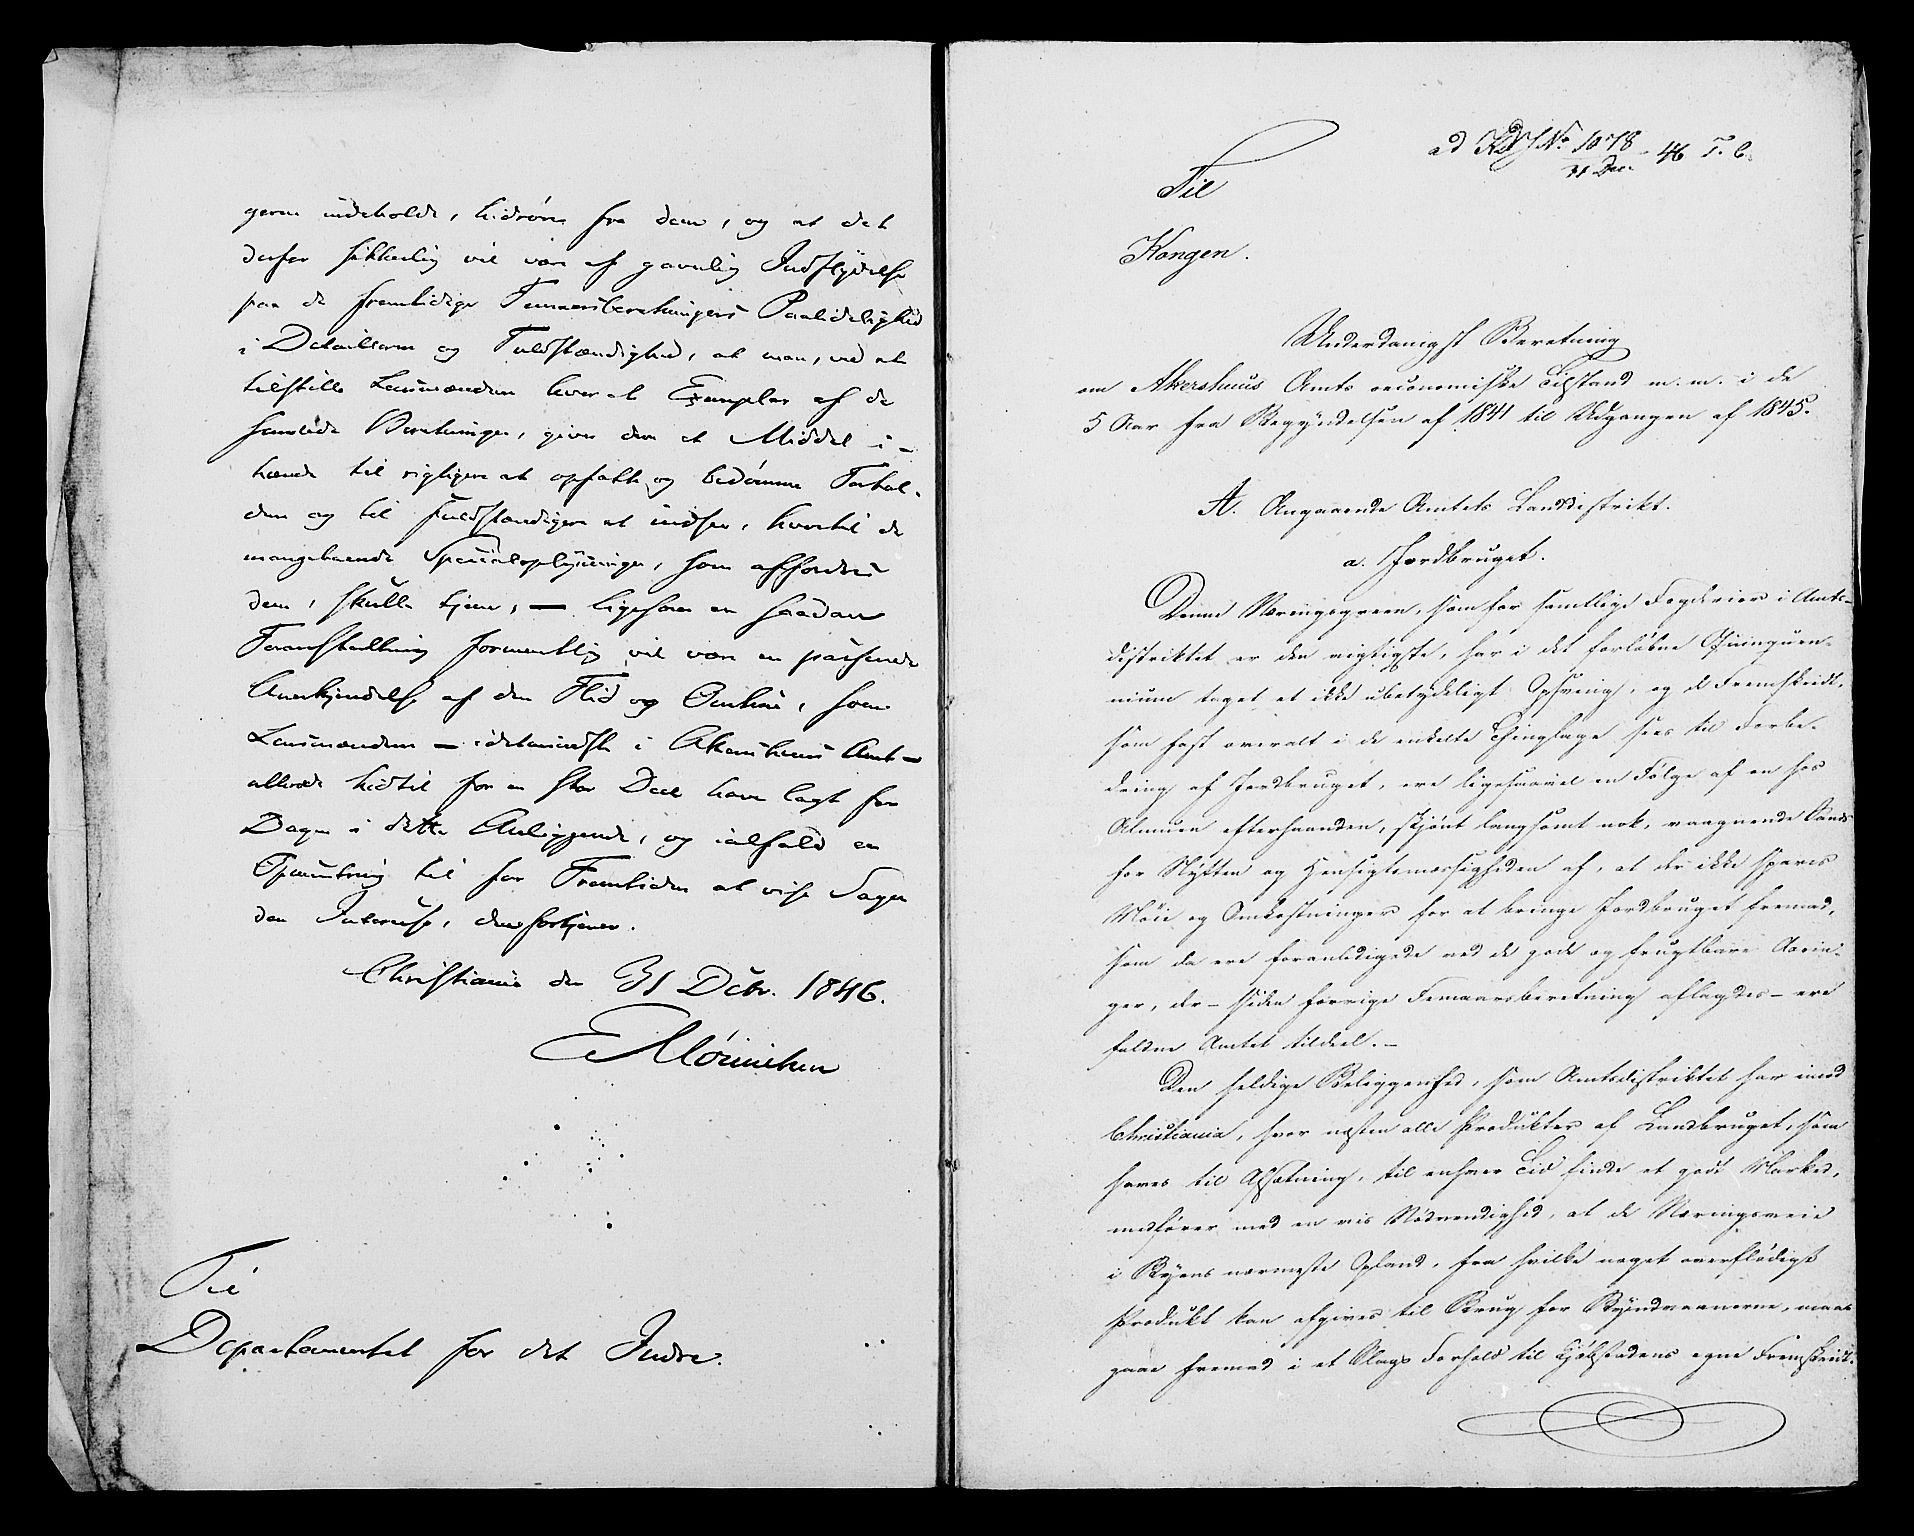 gerne indeholde, hidrøre fra dem, og at det
derfor sikkerlig vil være af gavnlig Indflydelse
paa de fremtidige Femaarsberetningers Paalidelighed
i Detaillerne og Fuldstændighed, at man, ved at
tilstille Lensmændene hver et Exemplar af de
samlede Beretninger, giver dem et Middel i
hænde til rigtigere at opfatte og bedømme Forhol-
dene og til fuldstændigere at indsee, hvortil de
mangehaande Specialoplysninger, som affordres
dem, skulle tjene, — ligesom en saadan
Foranstaltning formentlig vil være en passende
Anerkjendelse af den Flid og Omhue, som
Lensmændene — idetmindste i Akershuus Amt —
allerede hidtil for en stor Deel have lagt for
Dagen i dette Anliggende, og ialfald en
Opmuntring til for Fremtiden at vise Sagen
den Interesse, den fortjener.
Christiania den 31 Decbr. 1846.
Til
Departementet for det Indre.
ad No 1078
31 Dec. 46
Til
Kongen.
Underdanigst Beretning
om Akershuus Amts oeconomiske Tilstand m. m. i de
5 Aar fra Begyndelsen af 1841 til Udgangen af 1845.
A. Angaaende Amtets Landdistrikt.
a. Jordbruget.
Denne Næringsgreen, som for samtlige Fogderier i Amts-
distriktet er den vigtigste, har i det forløbne Qvinquen-
nium taget et ikke ubetydeligt Opsving, og de Fremskridt,
som fast overalt i de enkelte Thinglage sees til Forbe-
dring af Jordbruget, ere ligesaavel en Følge af en hos
Almuen efterhaanden, skjønt langsomt nok, vaagnende Sands
for Nytten og Hensigtsmæssigheden af, at der ikke spares
Møie og Omkostninger for at bringe Jordbruget fremad,
som de ere foranledigede ved de gode og frugtbare Aarin-
ger, der — siden forrige Femaarsberetning aflagdes — ere
faldne Amtet tildeel. —
Den heldige Beliggenhed, som Amtsdistriktet har imod
Christiania, hvor næsten alle Produkter af Landbruget, som
haves til Afsætning, til enhver Tid finde et godt Marked,
medfører med en vis Nødvendighed, at de Næringsveie
i Byens nærmeste Opland, fra hvilke noget overflødigt
Produkt kan afgives til Brug for Byindvaanerne, maae
gaae fremad i et Slags Forhold til Kjøbstadens egne Fremskridt.